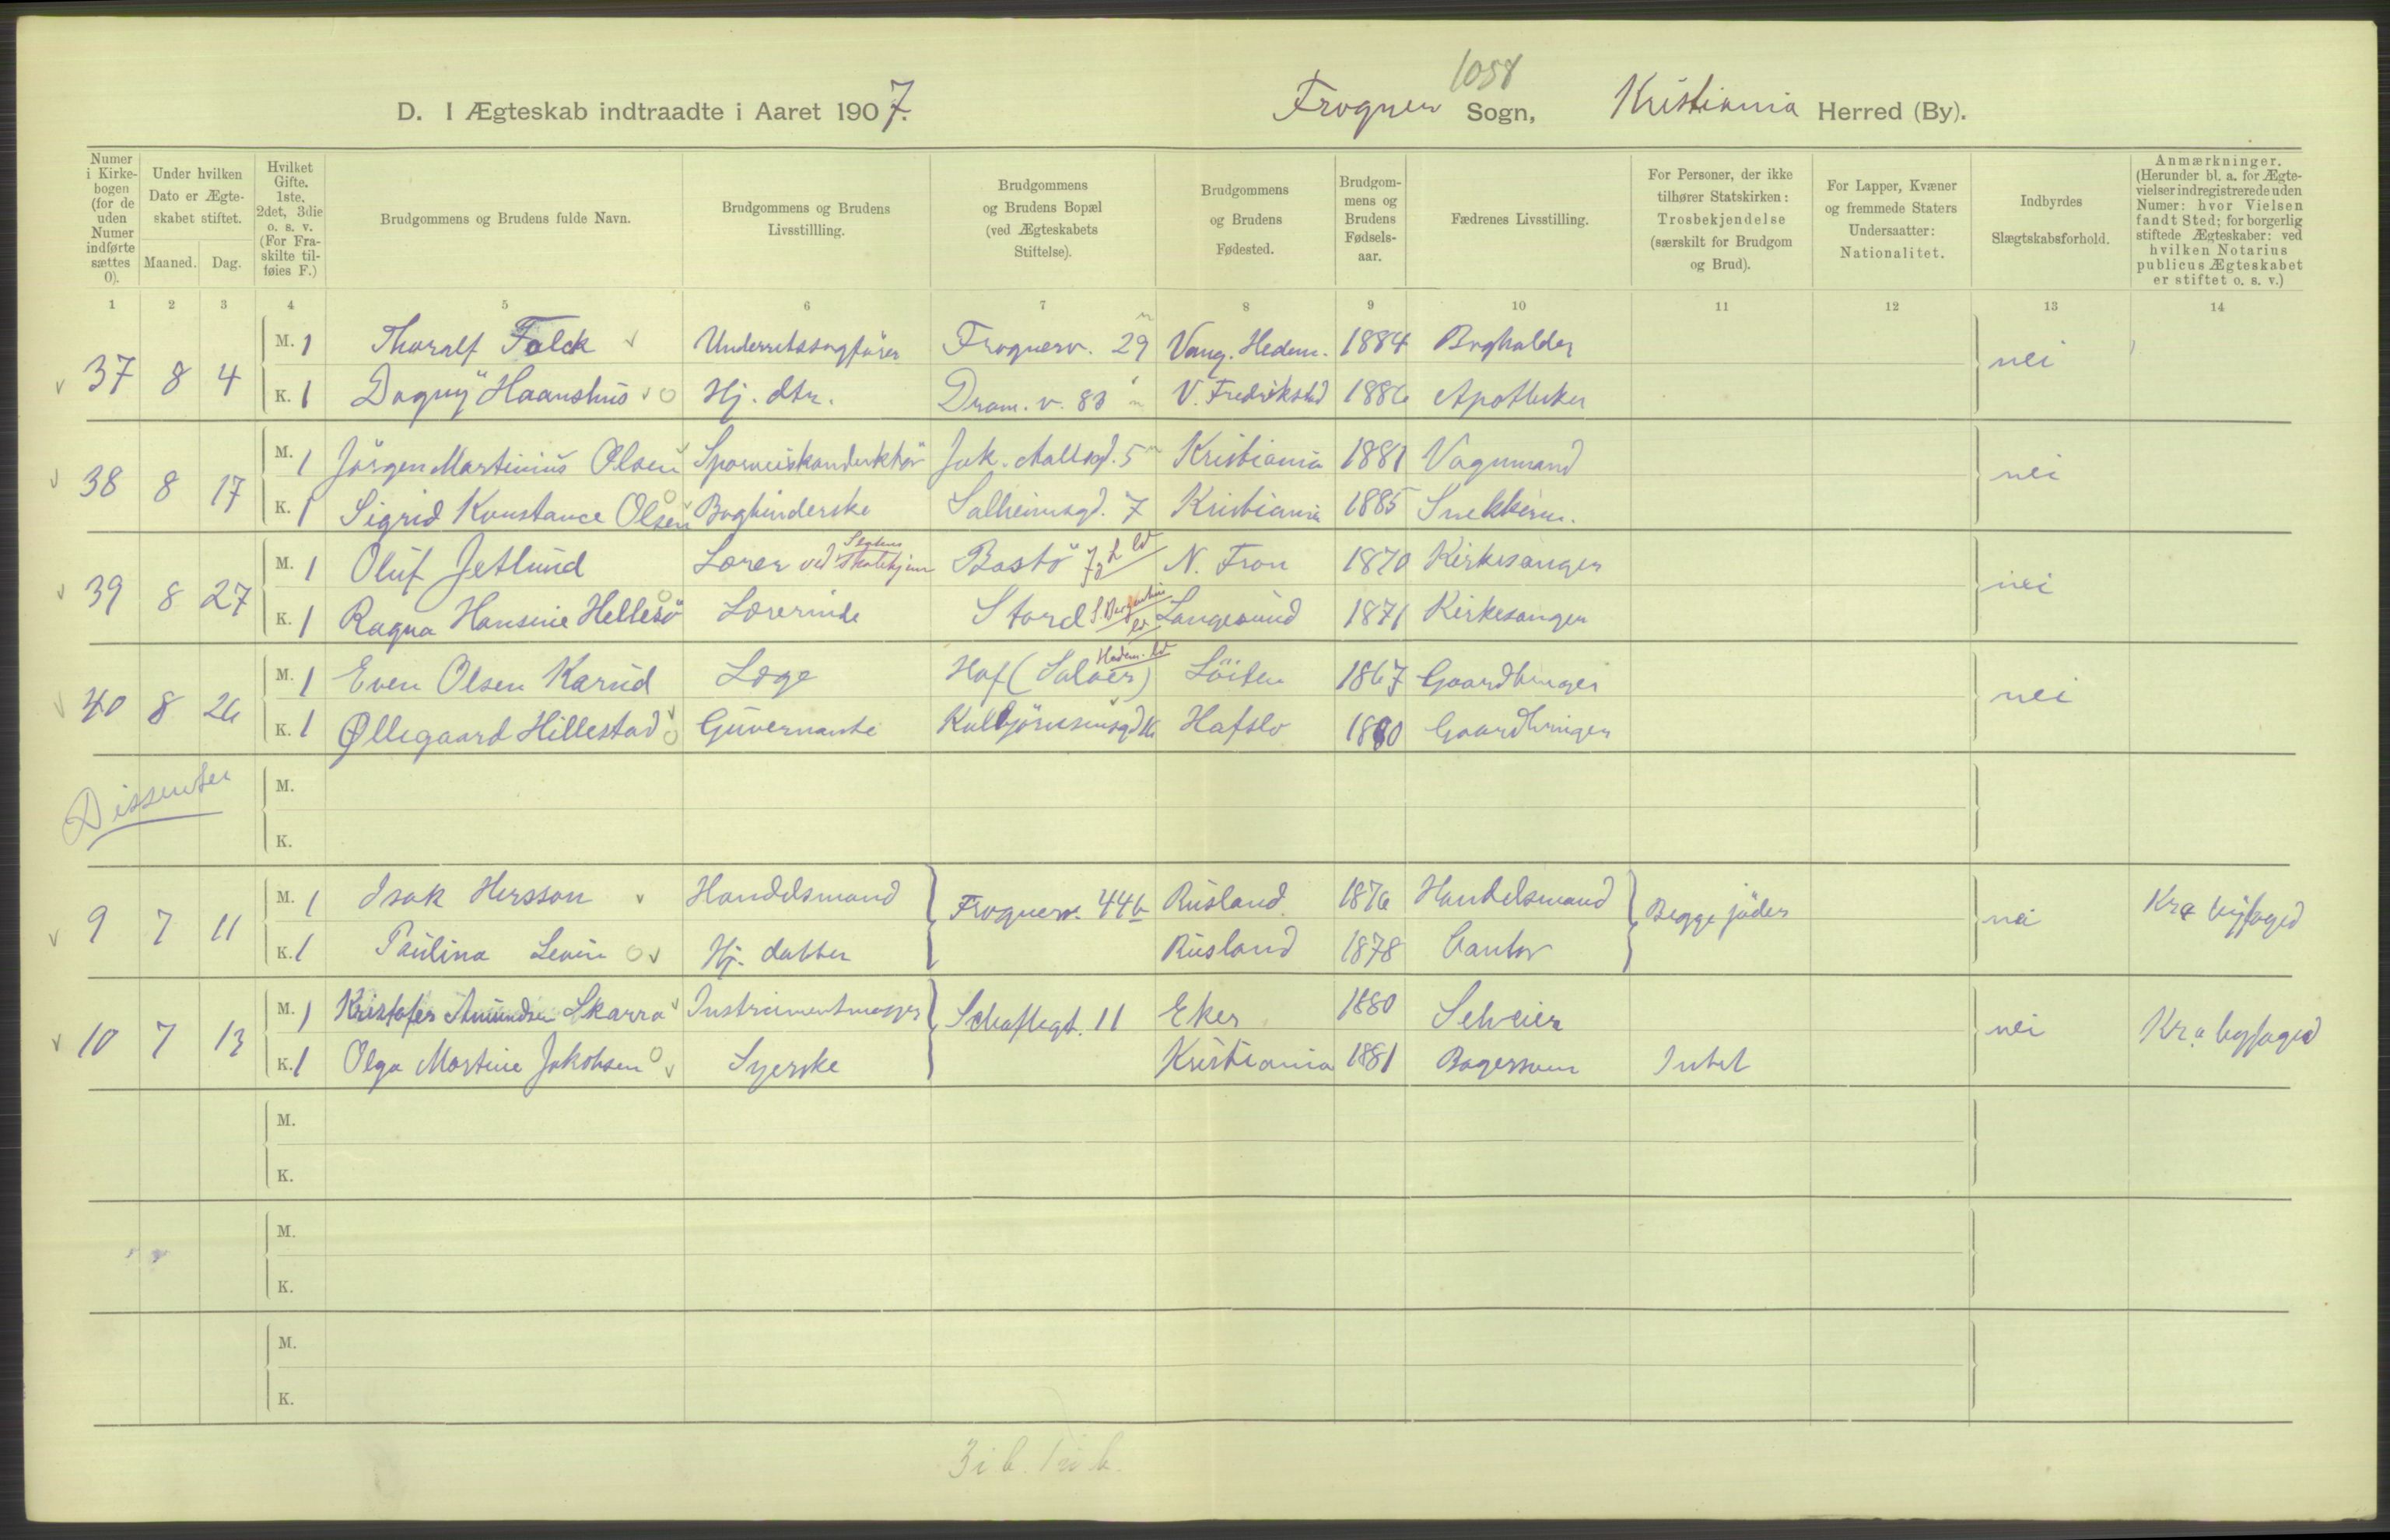 1058
D. I Ægteskab indtraadte i Aaret 1907. Frogner Sogn, Kristiania Herred (By).
Numer i Kirkebogen (for de uden Numer indførte sættes 0).
Under hvilken Dato er Ægteskabet stiftet.
Maaned. Dag.
Hvilket Gifte. 1ste, 2det, 3die o. s. v. (For Fraskilte tilføies F.)
Brudgommens og Brudens fulde Navn.
Brudgommens og Brudens Livsstillling.
Brudgommens og Brudens Bopæl (ved Ægteskabets Stiftelse).
Brudgommens og Brudens Fødested.
Brudgommens og Brudens Fødselsaar.
Fædrenes Livsstilling.
For Personer, der ikke tilhører Statskirken: Trosbekjendelse (særskilt for Brudgom og Brud).
For Lapper, Kvæner og fremmede Staters Undersaatter: Nationalitet.
Indbyrdes Slægtskabsforhold.
Anmærkninger. (Herunder bl. a. for Ægtevielser indregistrerede uden Numer: hvor Vielsen fandt Sted; for borgerlig stiftede Ægteskaber: ved hvilken Notarius publicus Ægteskabet er stiftet o. s. v.)
1 2 3 4 5 6 7 8 9 10 11 12 13 14
M. 1 Thoralf Falck Underretssagfører Frognerv. 29 Vang. Hedem. 1884 Bogholder
37 8 4 nei
K. 1 Dagny Haanshus Hj. dtr. Dram. v. 83 V. Fredrikstad 1886 Apotheker
M. 1 Jörgen Martinius Olsen Sporveiskonduktör Jak. Aallsgd. 5 Kristiania 1881 Vognmand
38 8 17 nei
K. 1 Sigrid Konstance Olsen Bogbinderske Solheimsgd. 7 Kristiania 1885 Snekkerm.
M. 1 Oluf Jetlund Lærer ved Statens Skolehjem Bastö N. Fron 1870 Kirkesanger
39 8 27 nei
K. 1 Ragna Hansine Hellesö Lærerinde Stord Langesund 1871 Kirkesanger
M. 1 Even Olsen Karud Læge Hof (Soløer) Hedem. Löiten 1867 Gaardbruger
40 8 26 nei
K. 1 Øllegaard Hillestad Guvernante Hafslo 1880 Gaardbruger
Dissenter
M.
K.
M. 1 Isak Hersson Handelsmand Rusland 1876 Handelsmand
9 7 11 Frognerv. 44b Begge jöder nei Kra byfoged
K. 1 Paulina Levin Hj. datter Rusland 1878 Cantor
M. 1 Kristofer Amundsen Skarra Instrumentmager Schaftegt. 11 Eker 1880 Selveier
10 7 13 nei Kra byfoged
K. 1 Olga Martine Jakobsen Syerske Kristiania 1881 Bagersven Intet
M.
K.
M.
K.
M.
K.